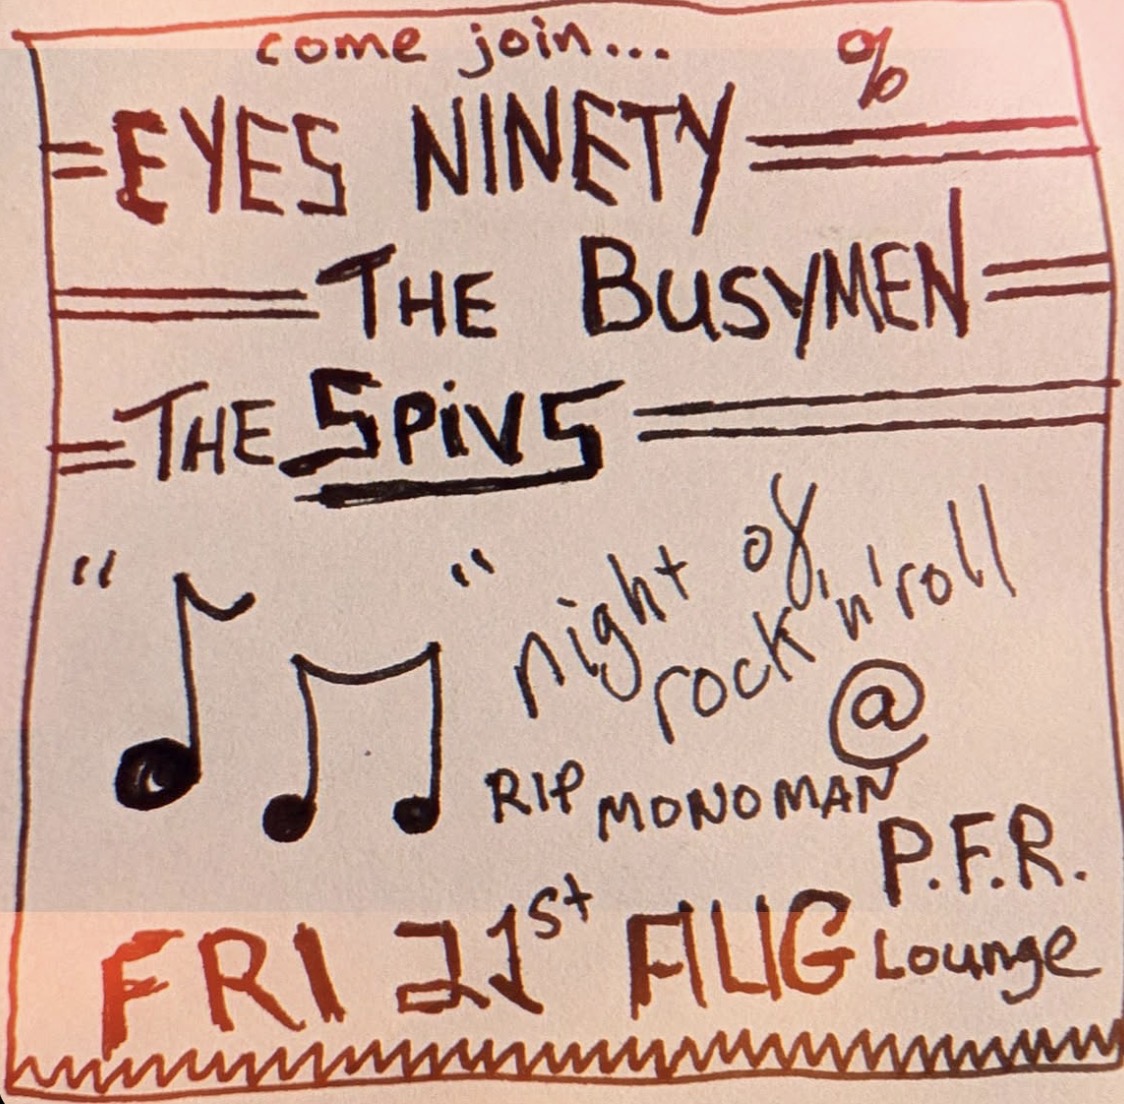 come join... %
EYES NINETY
THE BUSYMEN
THE SPiVS
" "
night of
rock 'n' roll
@
RIP MONOMAN
P.F.R.
Lounge
FRI 21st AUG